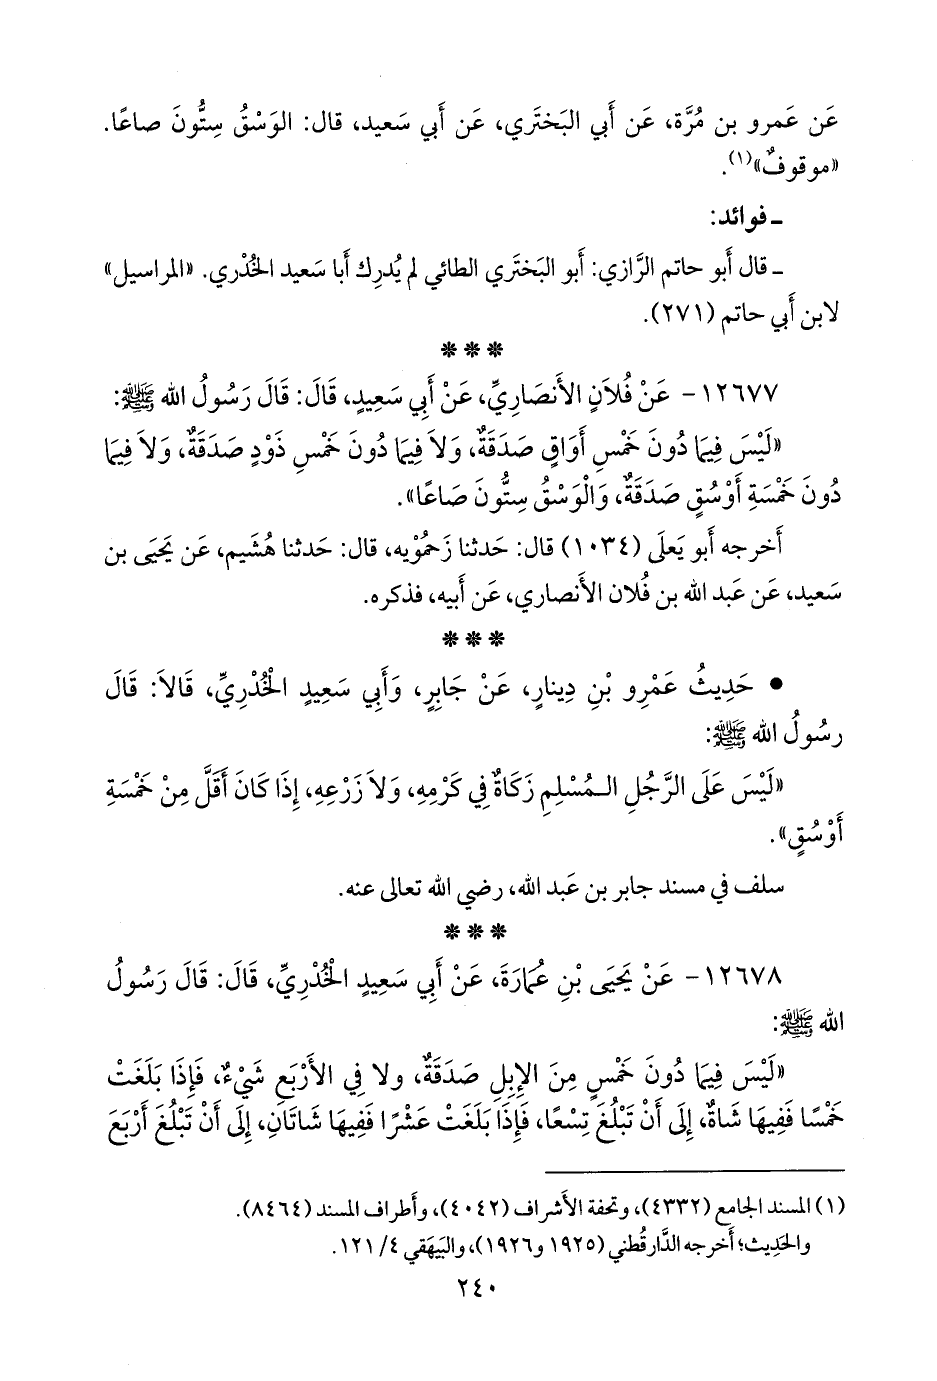 عَن عَمرو بن مُرَّة، عَن أَبي البَختَري، عَن أَبي سَعيد، قال: الوَسْقُ سِتُّونَ صاعًا.
«موقوفٌ»(١).
ـ فوائد:
ـ قال أَبو حاتم الرَّازي: أَبو البَختَري الطائي لم يُدرِك أَبا سَعيد الخُدْري. «المراسيل»
لابن أَبي حاتم (٢٧١).
***
١٢٦٧٧ - عَنْ فُلَانٍ الأَنصَارِيِّ، عَنْ أَبِي سَعِيدٍ، قَالَ: قَالَ رَسُولُ الله ﷺ:
«لَيْسَ فِيمَا دُونَ خَمْسِ أَوَاقٍ صَدَقَةٌ، وَلاَ فِيمَا دُونَ خَمْسِ ذَوْدٍ صَدَقَةٌ، وَلاَ فِيمَا
دُونَ خَمْسَةِ أَوْسُقٍ صَدَقَةٌ، وَالْوَسْقُ سِتُّونَ صَاعًا».
أَخرجه أَبو يَعلَى (١٠٣٤) قال: حَدثنا زَحمُوْيه، قال: حَدثنا هُشَيم، عَن يَحيَى بن
سَعيد، عَن عَبد الله بن فُلان الأَنصاري، عَن أَبيه، فذكره.
***
• حَدِيثُ عَمْرِو بْنِ دِينارٍ، عَنْ جَابِرٍ، وَأَبِي سَعِيدٍ الْخُدْرِيِّ، قَالاَ: قَالَ
رسُولُ الله ﷺ:
«لَيْسَ عَلَى الرَّجُلِ الـمُسْلِمِ زَكَاةٌ فِي كَرْمِهِ، وَلاَ زَرْعِهِ، إِذَا كَانَ أَقَلَّ مِنْ خَمْسَةِ
أَوْسُقٍ».
سلف في مسند جابر بن عَبد الله، رضي الله تعالى عنه.
***
١٢٦٧٨ - عَنْ يَحيَى بْنِ عُمَارَةَ، عَنْ أَبِي سَعِيدٍ الْخُدْرِيِّ، قَالَ: قَالَ رَسُولُ
الله ﷺ:
«لَيْسَ فِيمَا دُونَ خَمْسٍ مِنَ الإِبِلِ صَدَقَةٌ، ولا فِي الأَرْبَعِ شَيْءٌ، فَإِذَا بَلَغَتْ
خَمْسًا فَفِيهَا شَاةٌ، إِلَى أَنْ تَبْلُغَ تِسْعًا، فَإِذَا بَلَغَتْ عَشْرًا فَفِيهَا شَاتَانِ، إِلَى أَنْ تَبْلُغَ أَرْبَعَ
(١) المسند الجامع (٤٣٣٢)، وتحفة الأَشراف (٤٠٤٢)، وأَطراف المسند (٨٤٦٤).
والحَدِيث؛ أَخرجه الدَّارقُطني (١٩٢٥ و١٩٢٦)، والبَيهَقي ٤/ ١٢١.
٢٤٠